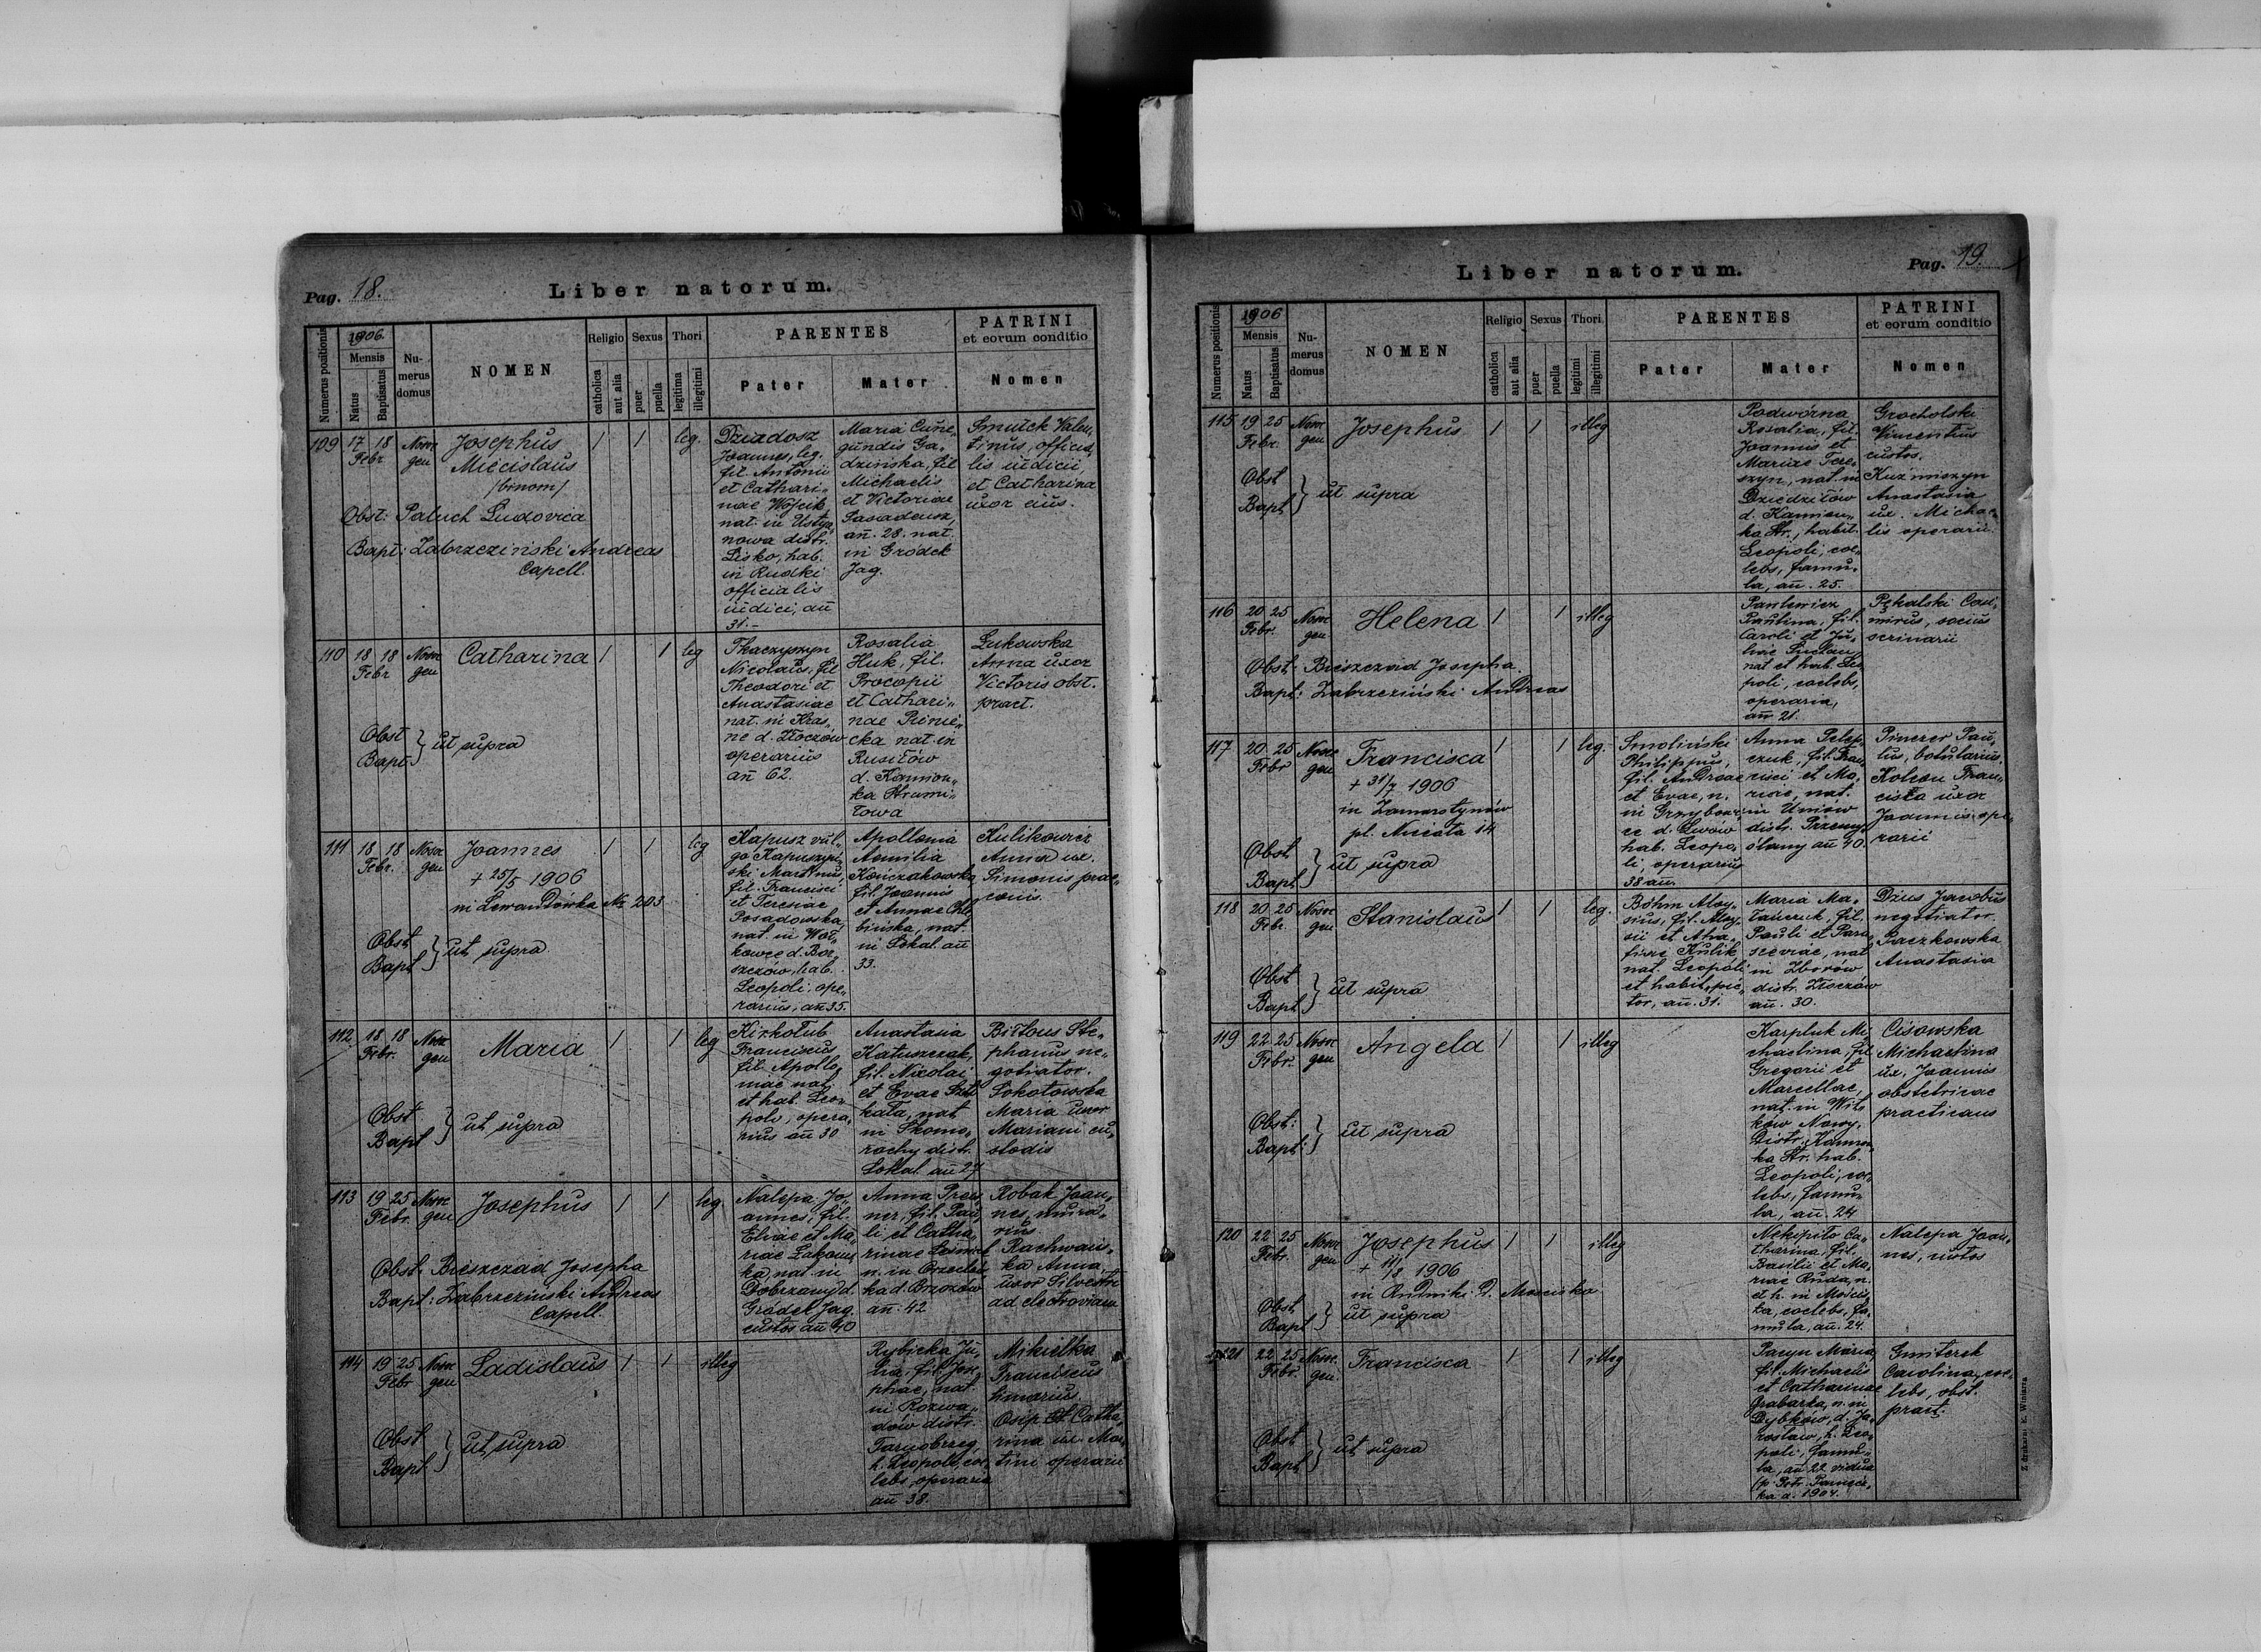 Pag. 18.
Liber natorum.
Numerus positionis
1906.
Mensis
Natus
Baptisatus
Nu-
merus
domus
NOMEN
Religio
catholica
aut alia
Sexus
puer
puella
Thori
legitima
illegitimi
PARENTES
Pater
Mater
PATRINI
et eorum conditio
Nomen
109
17 18
Febr
Nosoc
gen
Josephus
Miecislaus
/binom/
1
1
leg.
Obst: Paluch Ludovica
Bapt: Zabrzeziński Andreas
Capell.
Dziadosz
Joannes, leg.
fil. Antonii
et Cathari-
nae Wójcik
nat. in Ustja-
nowa distr.
Lisko, hab.
in Rudki
officialis
iudici, añ
31.-
Maria Cune-
gundis Ga-
dzińska, fil
Michaelis
et Victoriae
añ. 28. nat.
in Gródek
Jag.
Smutek Valen-
tinus, officia-
lis iudicii,
et Catharina
uxor eius.
110
18 18
Febr
Nosoc
gen
Catharina
1
1
leg
Obst
Bapt } ut supra
Tkaczyszyn
Nicolaus, fil
Theodori et
Anastasiae
nat. in Kras-
ne d. Złoczów
operarius
añ 62.
Rosalia
Huk, fil.
Procopii
et Cathari-
nae Pinie-
cka nat. in
Rusiłów
d. Kamion-
ka Strumi-
łowa
Łukowska
Anna uxor
Victoris obst.
pract.
111
18 18
Febr.
Nosoc
gen
Joannes
+ 25/5 1906
in Lewandówka № 203
1
1
leg
Obst
Bapt } ut supra
Kapusz vul-
go Kapuszyń-
ski Martinus,
fil. Francisci
et Teresiae
Posadowska,
nat. in Woł-
kowce d. Bor-
szczów, hab.
Leopoli, ope-
rarius, añ 35.
Apollonia
Aemilia
Kończakowska,
fil. Joannis
et Annae Chle-
bińska, nat.
in Sokal añ
33.
Kulikowicz
Anna ux.
Simonis prae-
conis.
112
18 18
Febr.
Nosoc
gen
Maria
1
1
leg
Obst
Bapt } ut supra
Kizkołub
Franciscus
fil. Apollo-
niae nat.
et hab. Leo-
poli, opera-
rius añ 30
Anastasia
Katuszczak,
fil. Nicolai
et Evae
nat.
in Skomo-
rochy distr.
Sokal añ 27
Biłous Ste-
phanus ne-
gotiator.
Sokołowska
Maria uxor
Mariani cu-
stodis
113
19 25
Febr.
Nosoc
gen
Josephus
1
1
leg
Obst. Bieszczad Josepha
Bapt: Zabrzeziński Andreas
Capell.
Nalepa Jo-
annes, fil.
Eliae et Ma-
riae
nat. in
Dobrzany d.
Gródek Jag.
custos añ 40
Anna
fil. Pau-
li et Catha-
rinae Leśniak
n. in
ka d. Brzozów
añ. 42
Robak Joan-
nes, mura-
rius
Rachwańs-
ka Anna,
uxor Silvestri
ad electroviam
114
19 25
Febr
Nosoc
gen
Ladislaus
1
1
illeg
Obst
Bapt } ut supra
Rybicka Ju-
lia, fil. Jose-
phae, nat.
in Rozwa-
dów distr.
Tarnobrzeg,
h. Leopoli, coe-
lebs, operaria
añ 38.
Mikiełka
Franciscus
Osip Catha-
rina ux. Mar-
tini operarii
Pag. 19.
Liber natorum.
Numerus positionis
1906
Mensis
Natus
Baptisatus
Nu-
merus
domus
NOMEN
Religio
catholica
aut alia
Sexus
puer
puella
Thori
legitimi
illegitimi
PARENTES
Pater
Mater
PATRINI
et eorum conditio
Nomen
115
19 25
Febr.
Nosoc
gen
Josephus
1
1
illeg
Obst
Bapt } ut supra
Podwórna
Rosalia, fil.
Joannis et
Mariae Tere-
szyn, nat. in
Dziedziłów
d. Kamion-
ka Str., habit.
Leopoli, coe-
lebs, famu-
la, añ. 25.
Grocholski
Vincentius
custos.
Kuźmiszyn
Anastasia
ux. Michae-
lis operarii.
116
20 25
Febr.
Nosoc
gen
Helena
1
1
illeg
Obst: Bieszczad Josepha
Bapt: Zabrzeziński Andreas
Pawlewicz
Paulina, fil.
Caroli et Ju-
liae
nat et hab. Leo-
poli, coelebs,
operaria,
añ 21.
Pękalski Casi-
mirus, socius
scrinarii
117
20 25
Febr
Nosoc
gen
Francisca
+ 31/7 1906
in Zamarstynów
pl. Niecała 14
1
1
leg.
Obst
Bapt } ut supra
Smoliński
Philippus,
fil. Andreae
et Evae, n.
in Grzybowi-
ce d. Lwów
hab. Leopo-
li, operarius
38 añ.
Anna Pelep-
czuk, fil. Fran-
cisci et Ma-
riae, nat.
in Uniów
distr. Przemy-
ślany añ 40.
Pinezer Pau-
lus, botularius.
Francis-
cisca uxor
Joannis ope-
rarii
118
20 25
Febr.
Nosoc
gen
Stanislaus
1
1
leg.
Obst
Bapt } ut supra
Böhm Aloy-
sius, fil. Aloy-
sii et Aga-
fiae Kulik
nat. Leopoli
et habit., pic-
tor, añ. 31.
Maria Ma-
fil.
Pauli et Para-
sceviae, nat
in Zborów
distr. Złoczów
añ. 30.
Dzius Jacobus
negotiator.
Paczkowska
Anastasia
119
22 25
Febr.
Nosoc
gen
Angela
1
1
illeg
Obst:
Bapt: } ut supra
Karpluk Mi-
chaelina, fil
Gregorii et
Marcellae,
nat. in Wit-
ków Nowy,
Distr. Kamion-
ka Str. hab.
Leopoli, coe-
lebs, famu-
la, añ. 24
Cisowska
Michaelina
ux. Joannis
obstetricae
practicans
120
22 25
Febr.
Nosoc
gen
Josephus
+ 11/8 1906
in Rudniki D. Mościska
1
1
illeg
Obst
Bapt } ut supra
Nekipiło Ca-
tharina, fil.
Basilii et Ma-
riae Ruda, n.
et h. in Mości-
ska, coelebs, fa-
mula, añ. 24.
Nalepa Joan-
nes, custos
121
22 25
Febr.
Nosoc.
gen.
Francisca
1
1
illeg
Obst
Bapt } ut supra
Pacyn Maria
fil. Michaelis
et Catharinae
Grabarka, n. in
Dybków, d. Ja-
rosław, h. Leo-
poli, famu-
la, añ 22 vidua
ka d. 1904.
Gmiterek
Carolina, coe-
lebs, obst.
pract.
Z drukarni E. Winiarza